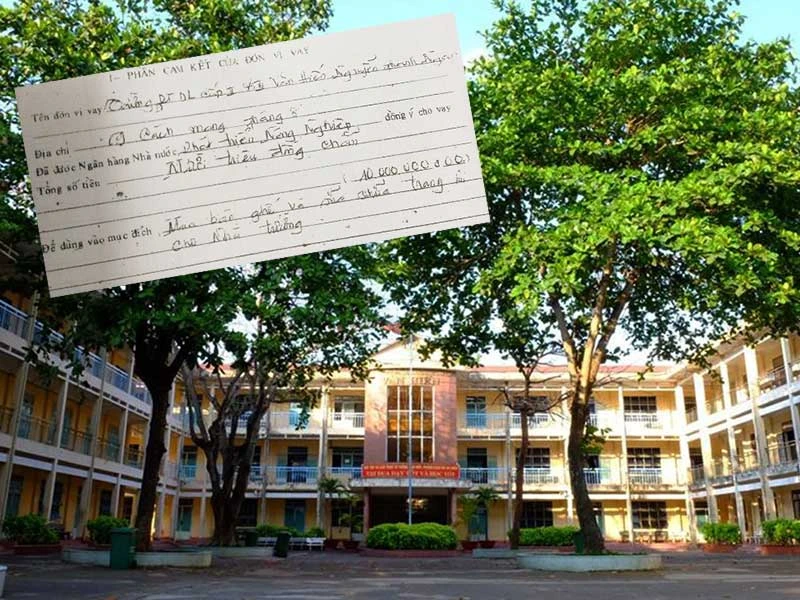 I – PHẦN CAM KẾT CỦA ĐƠN VỊ VAY
Tên đơn vị vay Trường PTDL cấp II
Địa chỉ Cách mạng tháng 8
Đã được Ngân hàng Nhà nước phát triển Nông Nghiệp đồng ý cho vay
Tổng số tiền Mười triệu đồng chẵn (10.000.000 đ 00)
Để dùng vào mục đích Mua bàn ghế và sửa chữa trang bị
cho Nhà trường
VĂN HIẾN
THI ĐUA DẠY TỐT VÀ HỌC TỐT